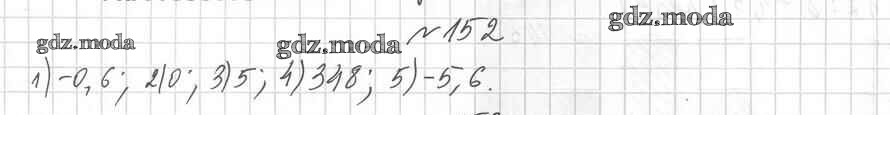 gdz.moda
№152
gdz.moda
gdz.moda
1) -0,6; 2) 0; 3) 5; 4) 348; 5) -5,6.